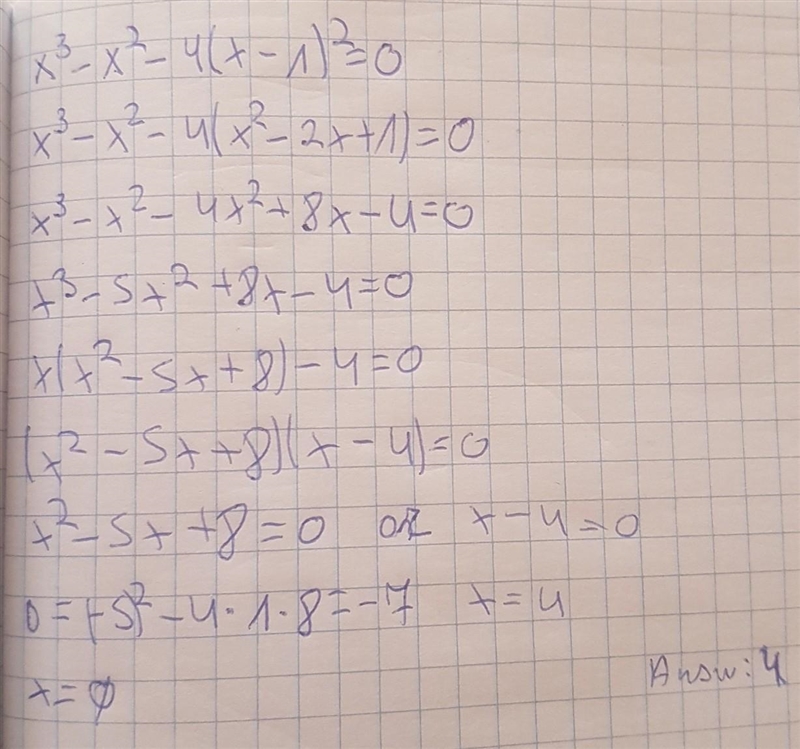 x³ - x² - 4(x - 1)² = 0
x³ - x² - 4(x² - 2x + 1) = 0
x³ - x² - 4x² + 8x - 4 = 0
x³ - 5x² + 8x - 4 = 0
x(x² - 5x + 8) - 4 = 0
(x² - 5x + 8)(x - 4) = 0
x² - 5x + 8 = 0 or x - 4 = 0
D = (-5)² - 4 · 1 · 8 = -7 x = 4
x = ∅
Answ: 4